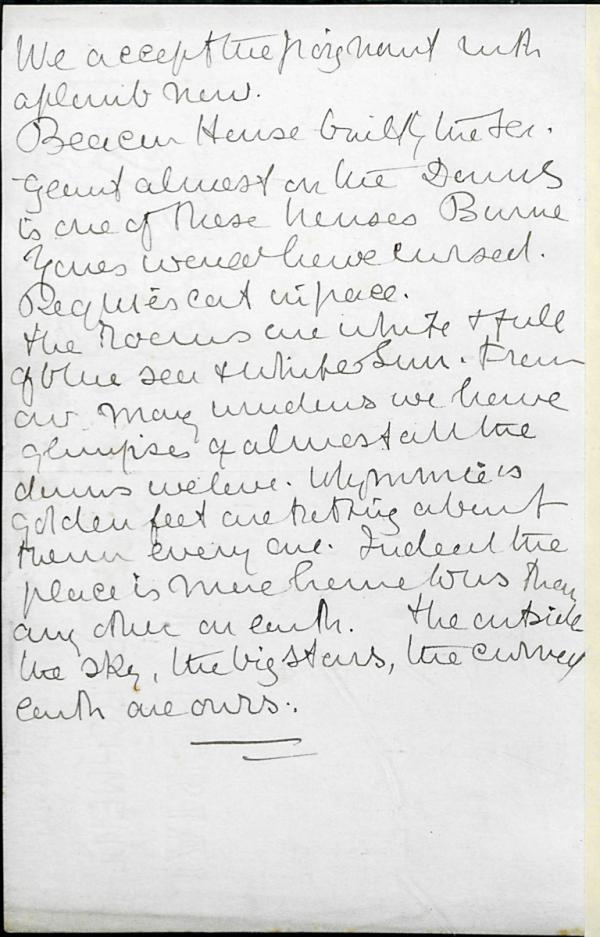 We accept the poignant with
aplomb now.
Beacon House built by the Ser-
geant almost on the Downs
is one of those houses Burne
Jones would have cursed.
Requiescat in pace.
The rooms are white & full
of blue sea & white Sun. From
our many windows we have
glimpses of almost all the
downs we love. Whymmie's
golden feet are trotting about
them every one. Indeed the
place is more home to us than
any other on earth. The outside
the sky, the big stars, the curved
earth are ours.